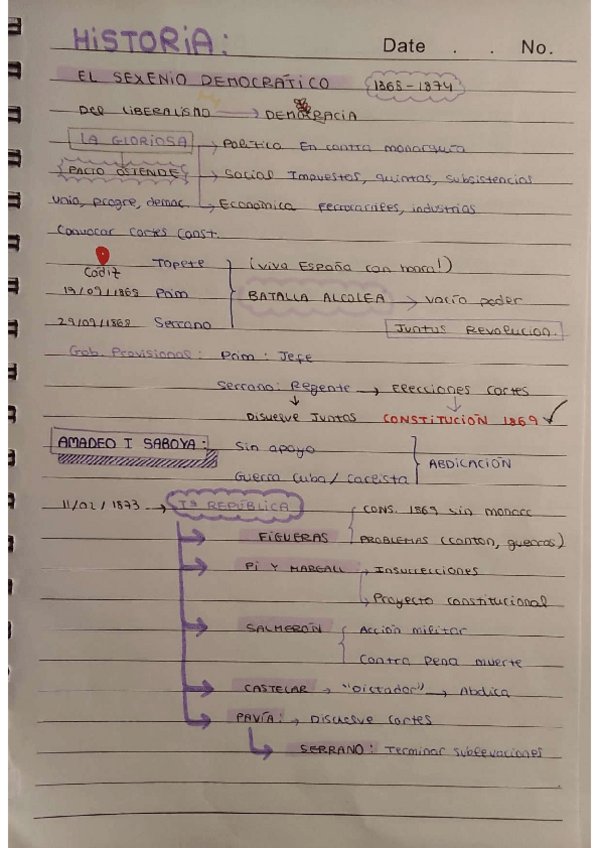 HISTORIA: Date . . No.
EL SEXENIO DEMOCRÁTICO 1868-1874
DEL LIBERALISMO → DEMOCRACIA
LA GLORIOSA → Política En contra monarquía
PACTO OSTENDE → Social Impuestos, quintas, subsistencias
Unio, progre, democ. → Económica Ferrocarriles, industrias
Convocar Cortes Const.
Cádiz Topete (viva España con honra!)
19/09/1868 Prim BATALLA ALCOLEA → vacío poder
29/09/1868 Serrano Juntas Revolucion.
Gob. Provisional: Prim: Jefe
Serrano: Regente → Elecciones Cortes
Disuelve Juntas CONSTITUCIÓN 1869
AMADEO I SABOYA: Sin apoyo
Guerra Cuba/ carlista ABDICACIÓN
11/02/1873 → Iª REPÚBLICA CONS. 1869 sin monarc
FIGUERAS PROBLEMAS (canton, guerras)
PI Y MARGALL → Insurrecciones
→ Proyecto constitucional
SALMERÓN Acción militar
Contra pena muerte
CASTELAR → "Dictador" → Abdica
PAVÍA: → Disuelve Cortes
SERRANO: Terminar sublevaciones